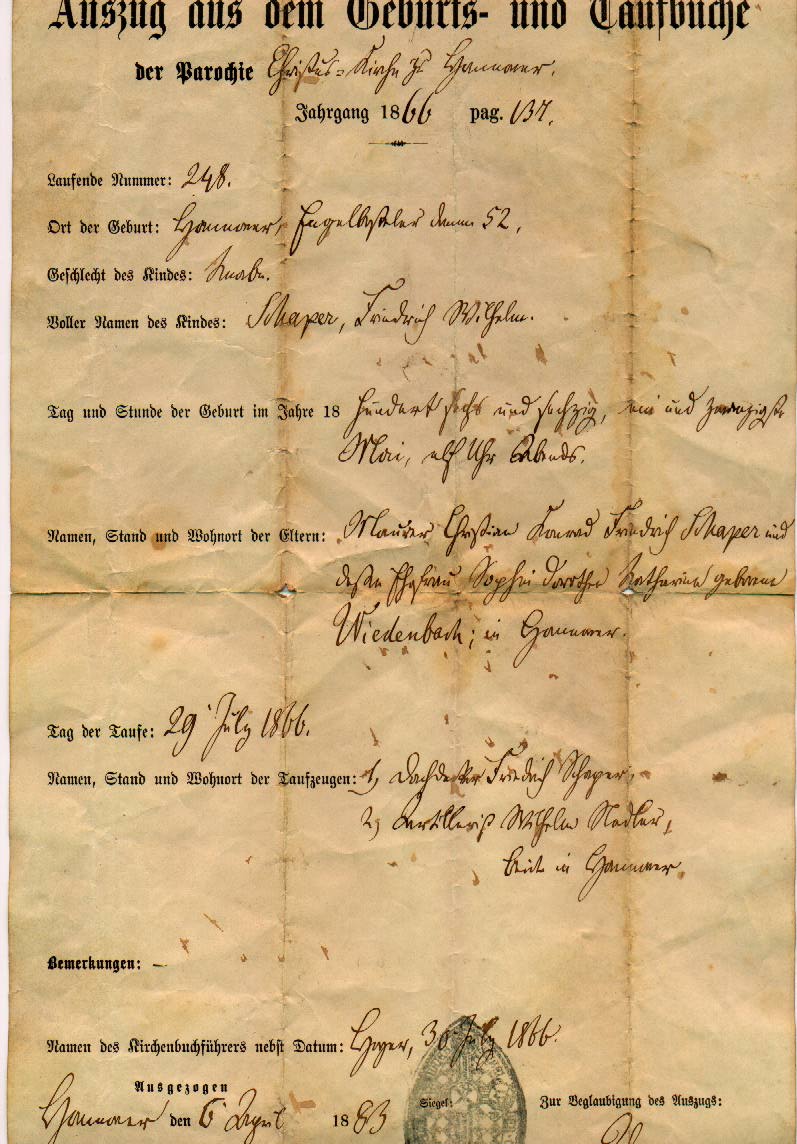 Auszug aus dem Geburts- und Taufbuche
der Parochie Christus-Kirche zu Hannover.
Jahrgang 1866 pag. 137.
Laufende Nummer: 248.
Ort der Geburt: Hannover, Engelbosteler damm 52,
Geschlecht des Kindes: Knabe.
Voller Namen des Kindes: Schaper, Friedrich Wilhelm.
Tag und Stunde der Geburt im Jahre 18 hundert sechs und sechzig, ein und zwanzigste
Mai, elf Uhr Abends.
Namen, Stand und Wohnort der Eltern: Maurer Christian Konrad Friedrich Schaper und
dessen Ehefrau Sophie Dorothee Katharine geborene
Wiedenbach; in Hannover.
Tag der Taufe: 29 July 1866.
Namen, Stand und Wohnort der Taufzeugen: 1, Dachdecker Friedrich Schaper,
2, Artillerist Wilhelm Nadler,
beide in Hannover.
Bemerkungen: —
Namen des Kirchenbuchführers nebst Datum: 30 July 1866.
Ausgezogen
Hannover den 6 April 1883
Siegel:
Zur Beglaubigung des Auszugs: